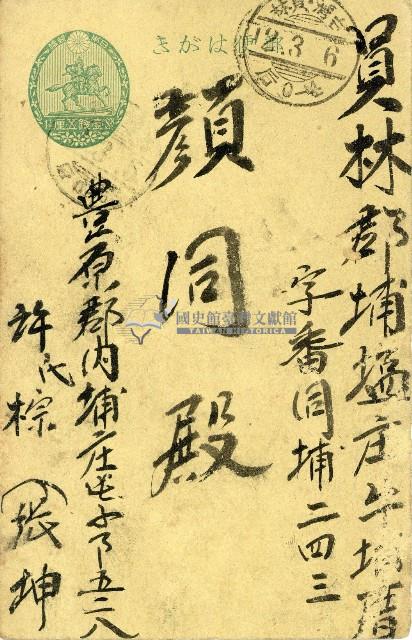 郵便はがき
3. 6
員林郡埔塩庄
字番同埔二四三
顏同殿
豊原郡內埔庄屯子下五二八
許氏棕
(張坤
國史館臺灣文獻館
TAIWAN HISTORICA